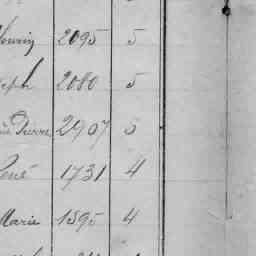 2095 5
2080 5
Pierre 2907 5
René 1731 4
Marie 1595 4